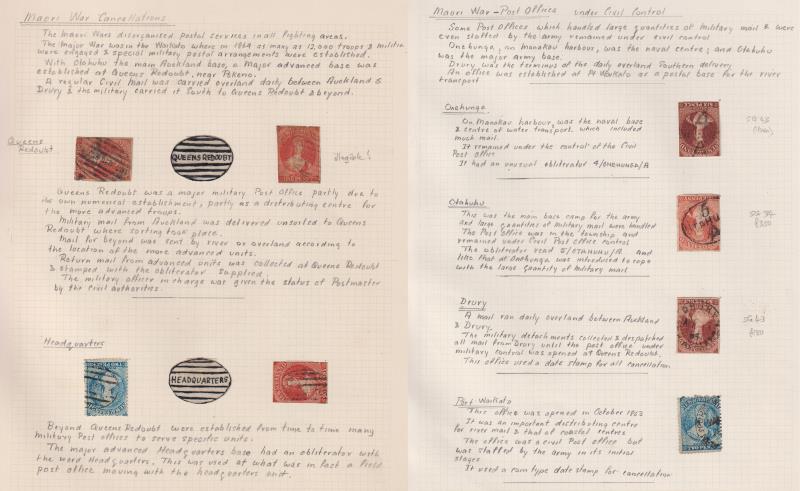 Maori War Cancellations
The Maori Wars disorganised postal services in all fighting areas.
The Major War was in the Waikato where in 1864 as many as 12,000 troops & militia
were engaged & special military postal arrangements were established.
With Otahuhu the main Auckland base, a Major advanced base was
established at Queens Redoubt, near Pokeno.
A regular Civil Mail was carried overland daily between Auckland &
Drury & the military carried it South to Queens Redoubt & beyond.
Queens
Redoubt
QUEENS REDOUBT
illegible!
Queens Redoubt was a major military Post Office partly due to
its own numerical establishment, partly as a distributing centre for
the more advanced troops.
Military mail from Auckland was delivered unsorted to Queens
Redoubt where sorting took place.
Mail for beyond was sent by river or overland according to
the location of the more advanced units.
Return mail from advanced units was collected at Queens Redoubt
& stamped with the obliterator supplied.
The military officer in charge was given the status of Postmaster
by the civil authorities.
Headquarters
HEADQUARTERS
Beyond Queens Redoubt were established from time to time many
Military Post offices to serve specific units.
The major advanced Headquarters base had an obliterator with
the word Headquarters. This was used at what was in fact a field
post office moving with the headquarters unit.
Maori War - Post Offices under Civil Control
Some Post Offices which handled large quantities of military mail & were
even staffed by the army remained under civil control
Onehunga, on Manakau harbour, was the naval centre; and Otahuhu
was the major army base.
Drury was the terminus of the daily overland Southern delivery
An office was established at Pt Waikato as a postal base for the river
transport
Onehunga
On Manakau harbour, was the naval base
& centre of water transport which included
much mail.
It remained under the control of the Civil
Post Office
It had an unusual obliterator 4/ONEHUNGA/A
SG 43
Otahuhu
This was the main back camp for the army
and large quantities of military mail were handled
The Post Office was in the township and
remained under Civil Post Office control
The obliterator read 5/OTAHUHU/A and
like that at Onehunga was introduced to cope
with the large quantity of military mail
Drury
A mail ran daily overland between Auckland
& Drury.
The military detachments collected & despatched
all mail from Drury until the post office under
military control was opened at Queens Redoubt.
This office used a date stamp for all cancellation
SG 43
Port Waikato
This office was opened in October 1863
It was an important distributing centre
for river mail & that of coastal centres
The office was a civil Post office but
was staffed by the army in its initial
stages
It used a rare type date stamp for cancellation